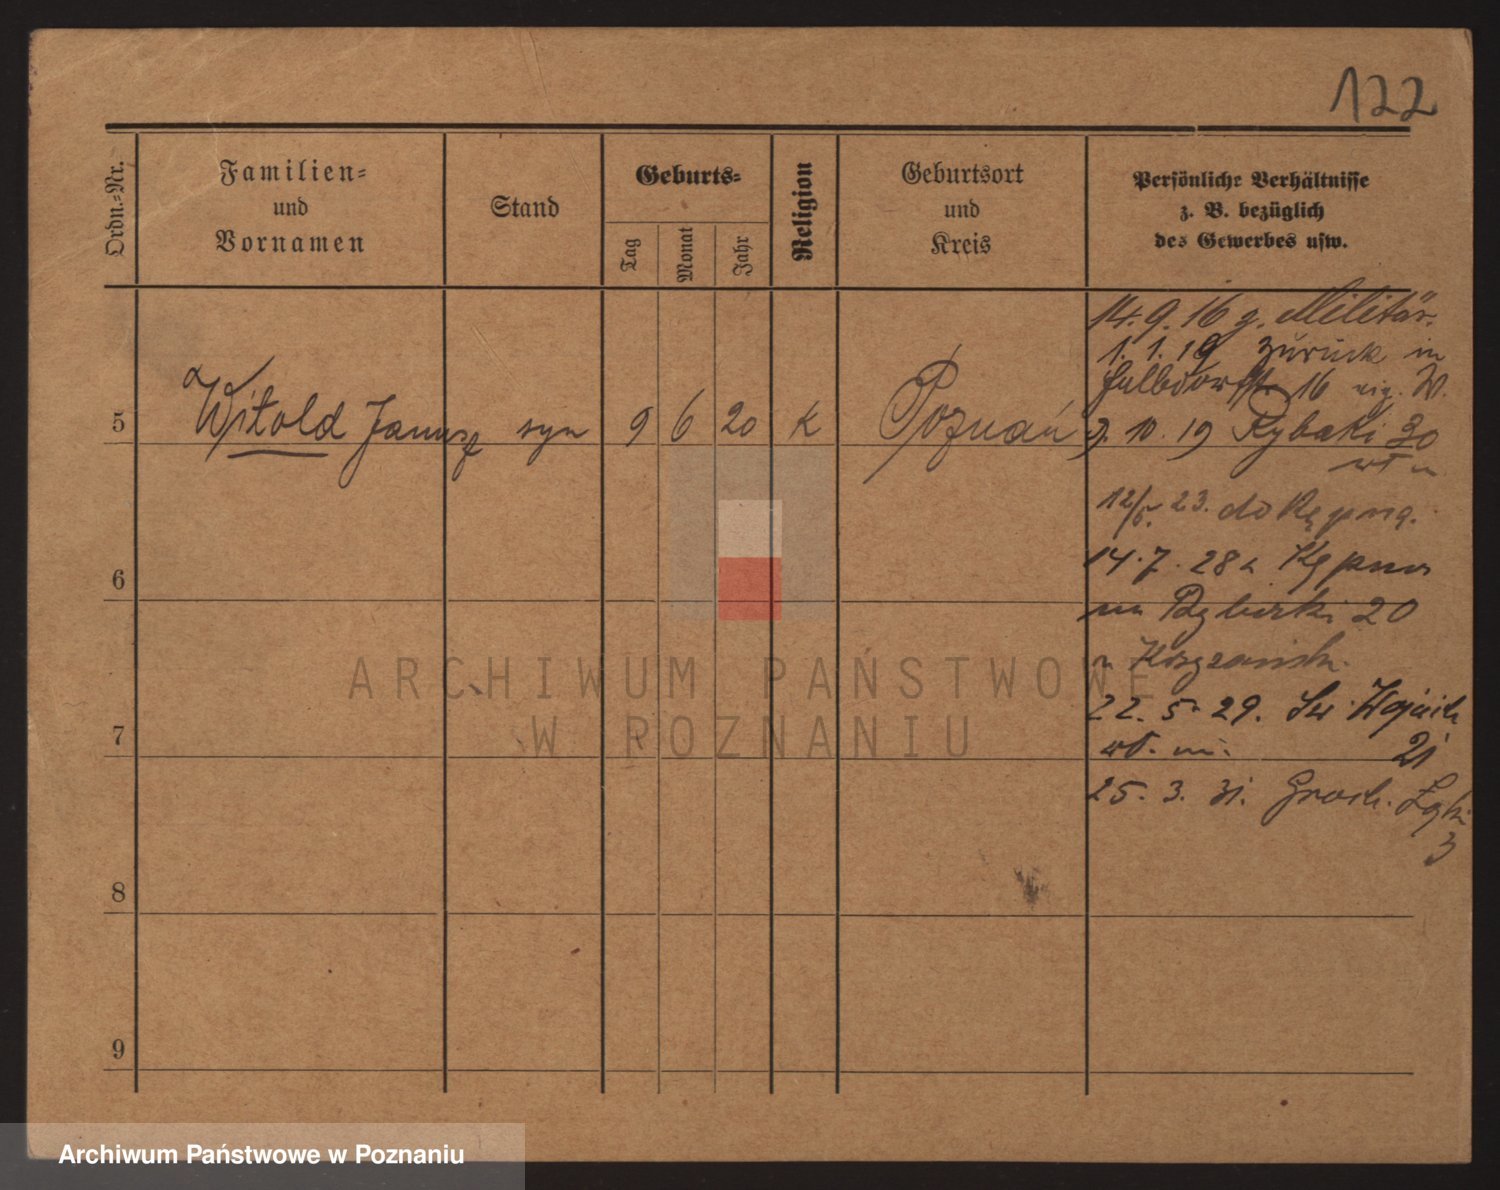 122
Ordn.-Nr.
Familien-
und
Vornamen
Stand
Geburts-
Tag
Monat
Jahr
Religion
Geburtsort
und
Kreis
Persönliche Verhältnisse
z. B. bezüglich
des Gewerbes usw.
14. 9. 16 z. Militär.
1. 1. 19 zurück in
16 eig. W.
5 Witold Janusz syn 9 6 20 k Poznań
10. 19 Rybaki 30
12/5. 23. do Kępna.
6
14. 7. 28 z Kępna
20
7
22. 5. 29. Św. Wojciech
21
25. 3. 31. Groch. Łąki
3
8
9
ARCHIWUM PAŃSTWOWE
W POZNANIU
Archiwum Państwowe w Poznaniu